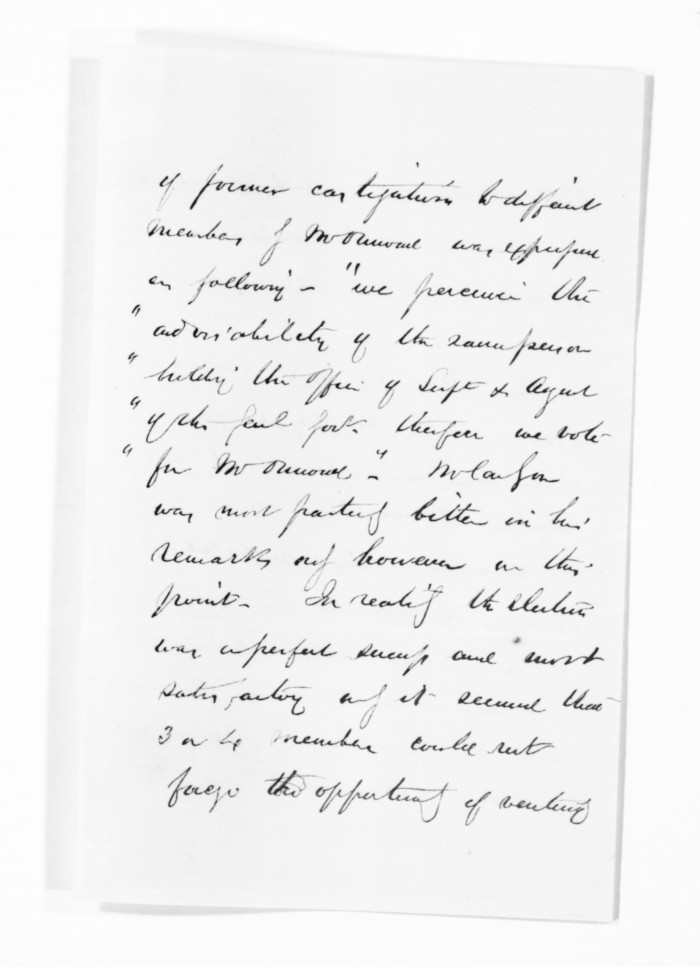 of former castigations to different
members of Mr Ormond was expressed
as following – "we perceive the
" advisability of the same person
" holding the office of Supt & Agent
" of the Genl Govt. therefore we vote
" for Mr Ormond". McLean
was most bitter in his
remarks only however on this
point – In reality the election
was a perfect success and most
satisfactory only it seemed that
3 or 4 members could not
forego the opportunity of venting